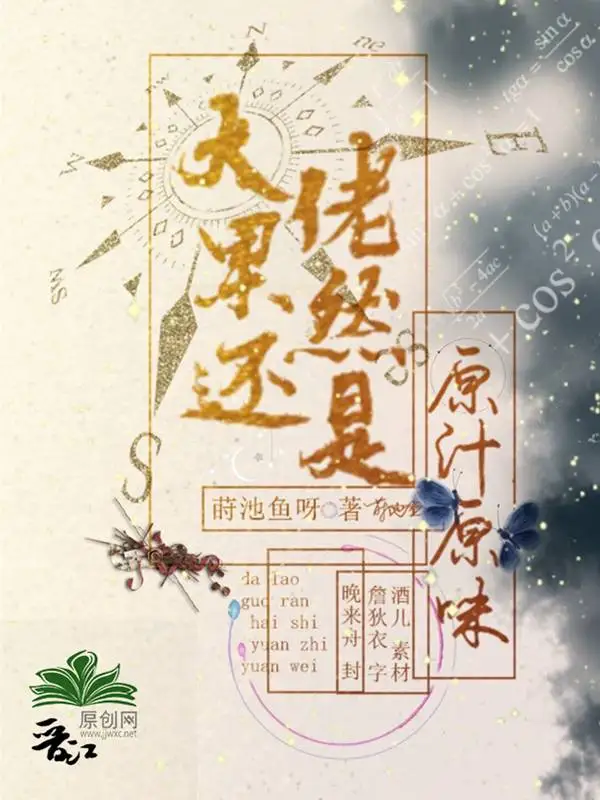 大佬
果然
还是
原汁原味
莳池鱼呀 著
da lao
guo ran
hai shi
yuan zhi
yuan wei
酒儿 素材
詹狄衣 字
晚来舟 封
N
ne
E
S
SW
W
tgα = sin α / cos α
cos α
+ cos 2
原创网
www.jjwxc.net
晋江